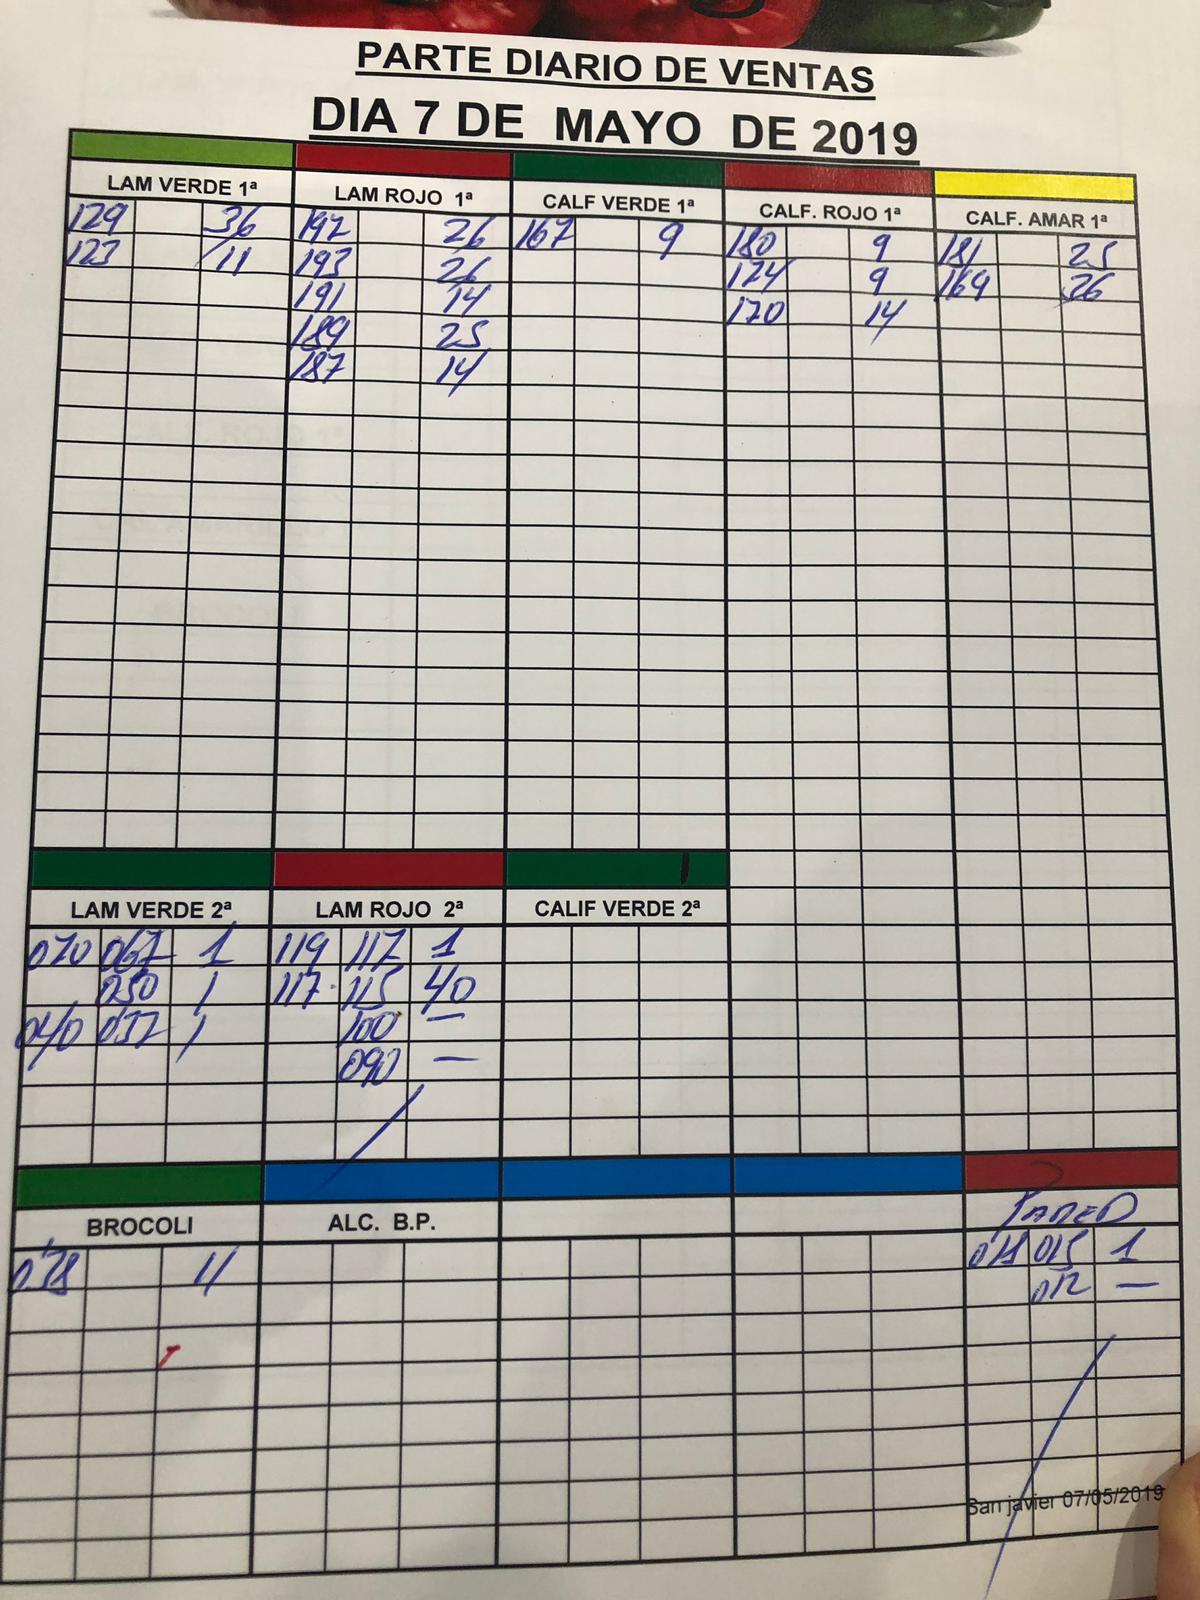 PARTE DIARIO DE VENTAS
DIA 7 DE MAYO DE 2019
LAM VERDE 1ª LAM ROJO 1ª CALF VERDE 1ª CALF. ROJO 1ª CALF. AMAR 1ª
129 36 197 26 167 9 180 9 181 25
123 11 193 26 174 9 169 26
191 14 170 14
189 25
187 14
LAM VERDE 2ª LAM ROJO 2ª CALIF VERDE 2ª
070 067 1 119 117 1
050 1 117 115 40
040 037 1 100 —
090 —
BROCOLI ALC. B.P. PARED
0'38 11 018 015 1
012 —
San javier 07/05/2019